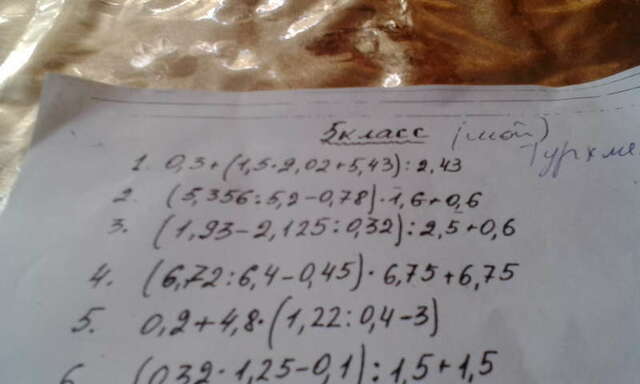 5класс (мой)
Туркме
1. 0,3+(1,5·2,02+5,43):2,43
2. (5,356:5,2-0,78)·1,6+0,6
3. (1,93-2,125:0,32):2,5+0,6
4. (6,72:6,4-0,45)·6,75+6,75
5. 0,2+4,8·(1,22:0,4-3)
6. (0,32·1,25-0,1):1,5+1,5